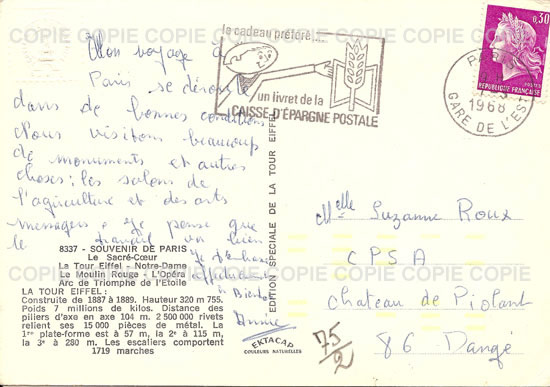 COPIE COPIE COPIE COPIE COPIE COPIE
le cadeau préféré....
un livret de la
CAISSE D'EPARGNE POSTALE
0,30
REPUBLIQUE FRANÇAISE
POSTES
1968
GARE DE L'EST
Mon voyage à
Paris se déroule
dans de bonnes conditions
Nous visitons beaucoup
de monuments et autres
choses : les salons de
l'agriculture et des arts
ménagers. Je pense que
le travail va bien
à Bientôt
Annie
EDITION SPECIALE DE LA TOUR EIFFEL
Melle Suzanne Roux
CPSA
Chateau de Piolant
86 Dangé
75/2
8337 - SOUVENIR DE PARIS
Le Sacré-Cœur
La Tour Eiffel - Notre-Dame
Le Moulin Rouge - L'Opéra
Arc de Triomphe de l'Etoile
LA TOUR EIFFEL :
Construite de 1887 à 1889. Hauteur 320 m 755.
Poids 7 millions de kilos. Distance des
piliers d'axe en axe 104 m. 2 500 000 rivets
relient ses 15 000 pièces de métal. La
1re plate-forme est à 57 m, la 2e à 115 m,
la 3e à 280 m. Les escaliers comportent
1719 marches
EKTACAP
COULEURS NATURELLES